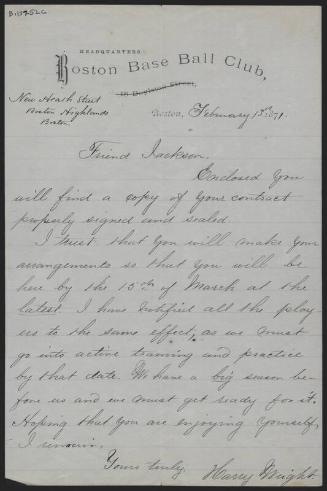 B-1395.66
HEADQUARTERS
Boston Base Ball Club,
18 Boylston Street,
New Heath Street
Boston Highlands
Boston
Boston, February 13th 1871.
Friend Jackson.
Enclosed you
will find a copy of your contract
properly signed and sealed.
I trust that you will make your
arrangements so that you will be
here by the 15th of March at the
latest. I have notified all the play-
ers to the same effect, as we must
go into active training and practice
by that date. We have a big season be-
fore us and we must get ready for it.
Hoping that you are enjoying yourself,
I remain.
Yours truly,
Harry Wright.